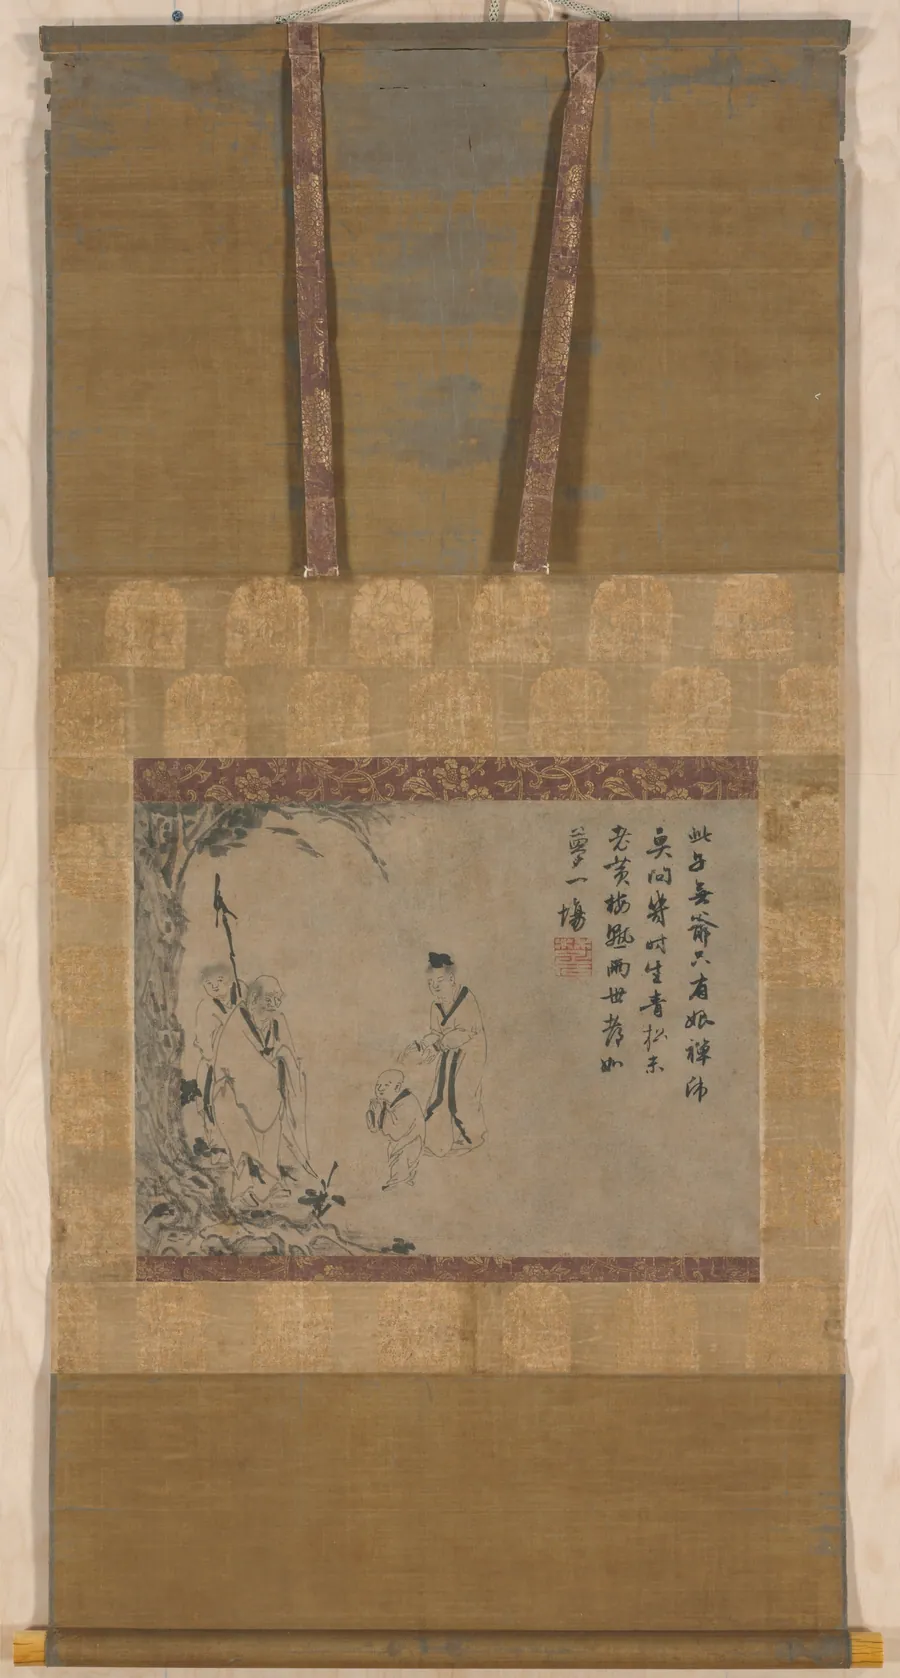 此子無爺只有娘禪師
莫問幾時生青松未
老黃梅熟兩世
夢一場